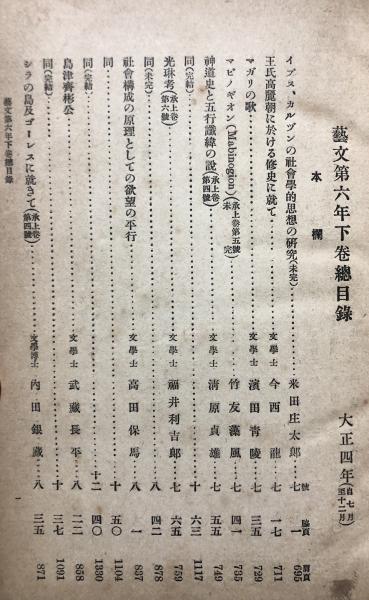 藝文第六年下卷總目錄 大正四年(自七月至十二月)
本欄
號
イブヌ、カルヅンの社會學的思想の研究(未完) 米田庄太郎 七 一 695
王氏高麗朝に於ける修史に就て 文學士 今西龍 七 一七 711
マガリの歌 文學士 濱田青陵 七 三五 729
マビノギオン(Mabinogion)(承上卷第五號未完) 竹友藻風 七 四一 735
神道史と五行讖緯の說(承上卷第四號) 文學士 清原貞雄 七 五五 749
同(完結) 十 六三 1117
光琳考(承上卷第六號) 文學士 福井利吉郎 七 六五 759
同(未完) 八 四二 878
社會構成の原理としての欲望の平行 文學士 高田保馬 八 一 837
同 十 五〇 1104
同(完結) 十二 四〇 1330
島津齊彬公 文學士 武藏長平 八 二二 858
同(完結) 十 三七 1091
シラの島及ゴーレスに就きて(承上卷第四號) 文學博士 內田銀藏 八 三五 871
藝文第六年下卷總目錄 一